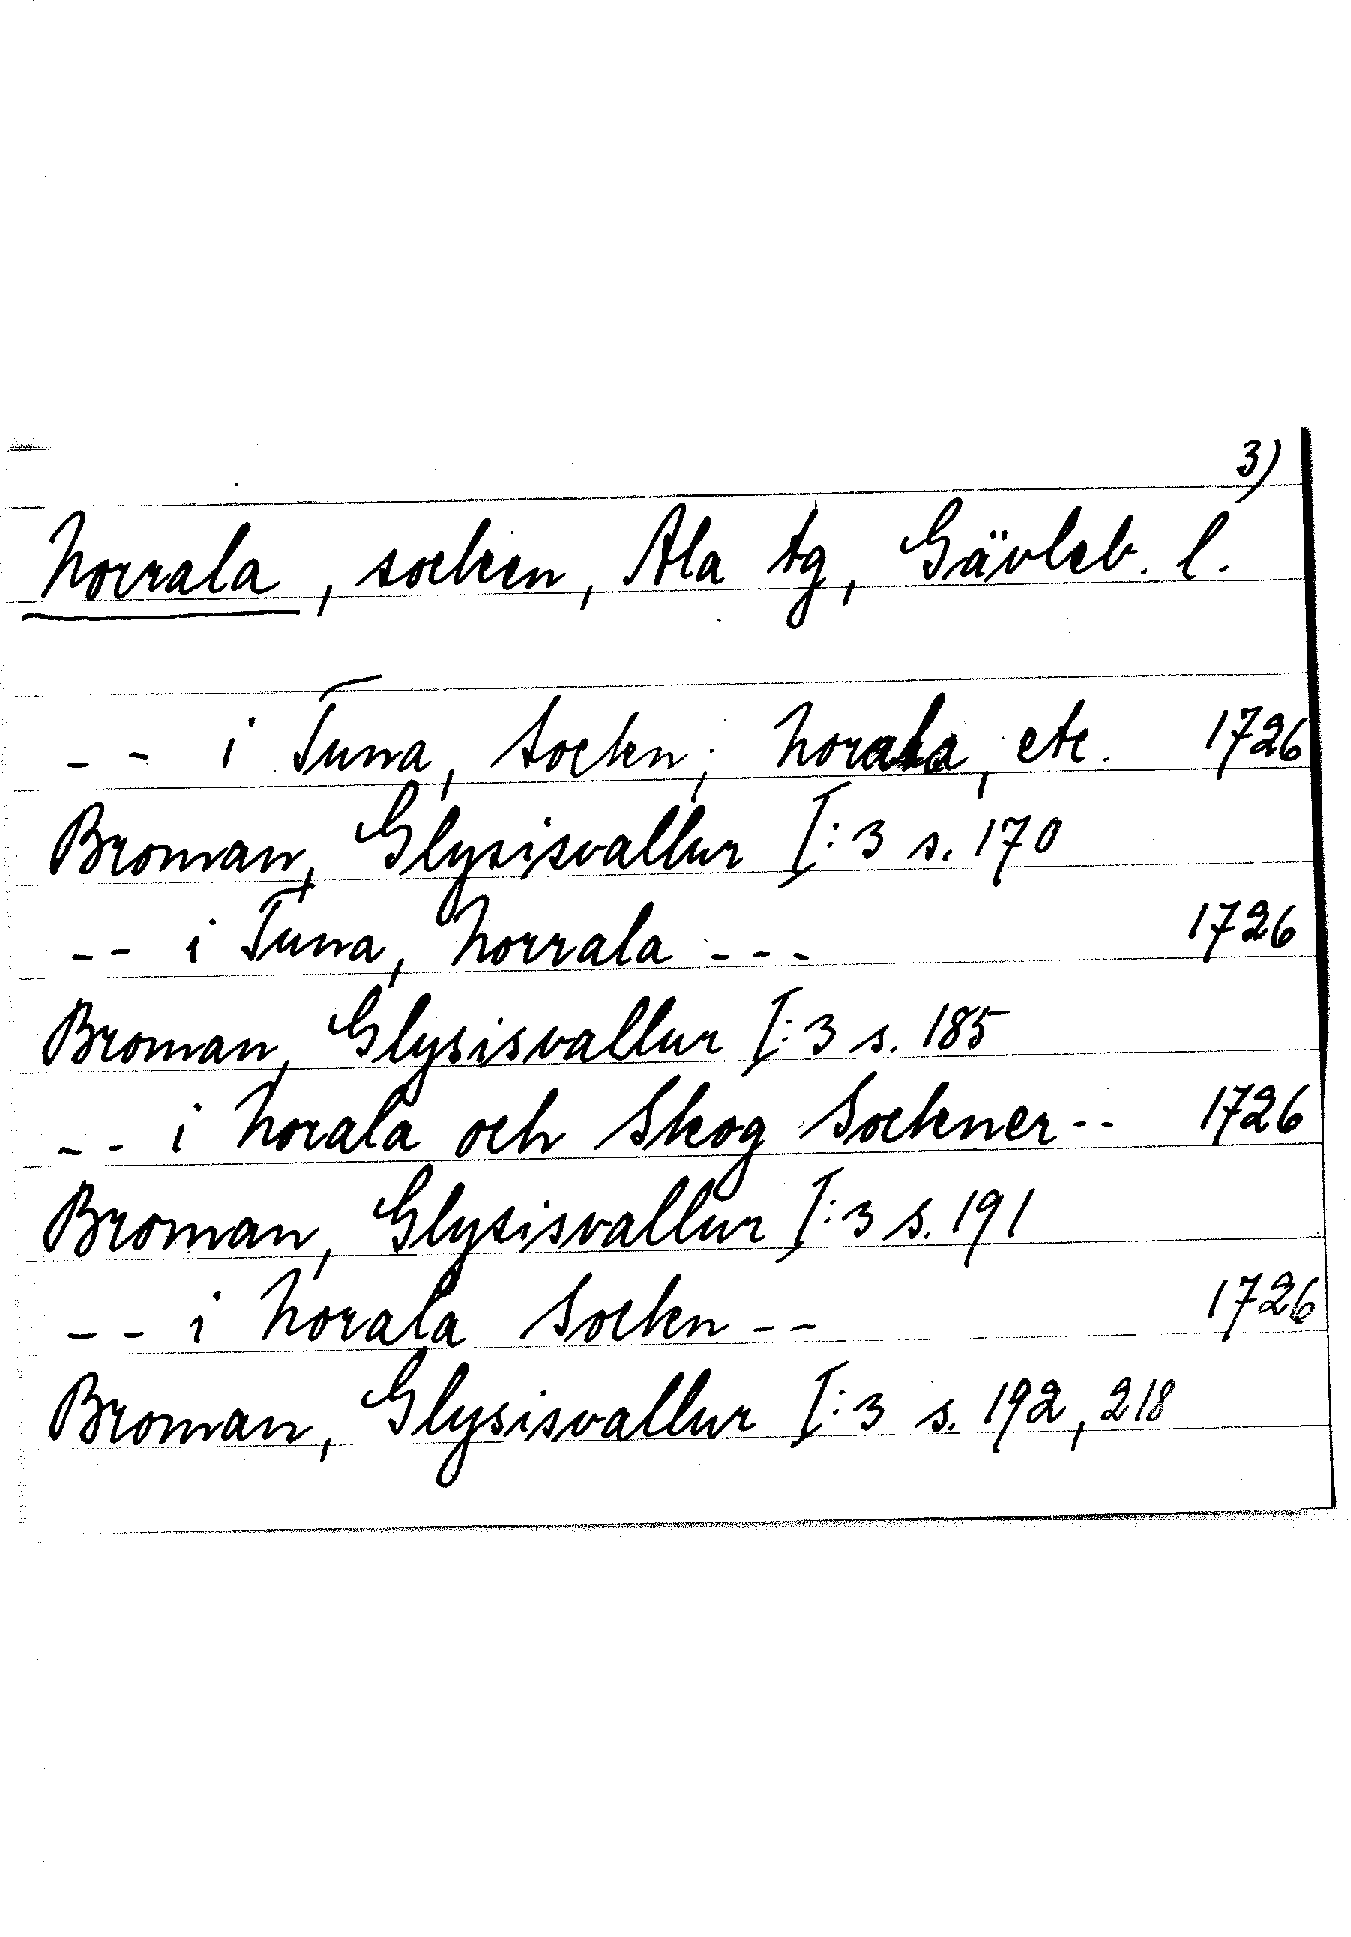 3)
Norrala, socken, Ala tg, Gävleb. l.
-- i Tuna, Sockn; Norala, etc. 1726
Broman, Glysisvallur I:3 s. 170
-- i Tuna, Norrala --- 1726
Broman, Glysisvallur I:3 s. 185
-- i Norala och Skog Sockner-- 1726
Broman, Glysisvallur I:3 s. 191
-- i Norala Sockn -- 1726
Broman, Glysisvallur I:3 s. 192, 218